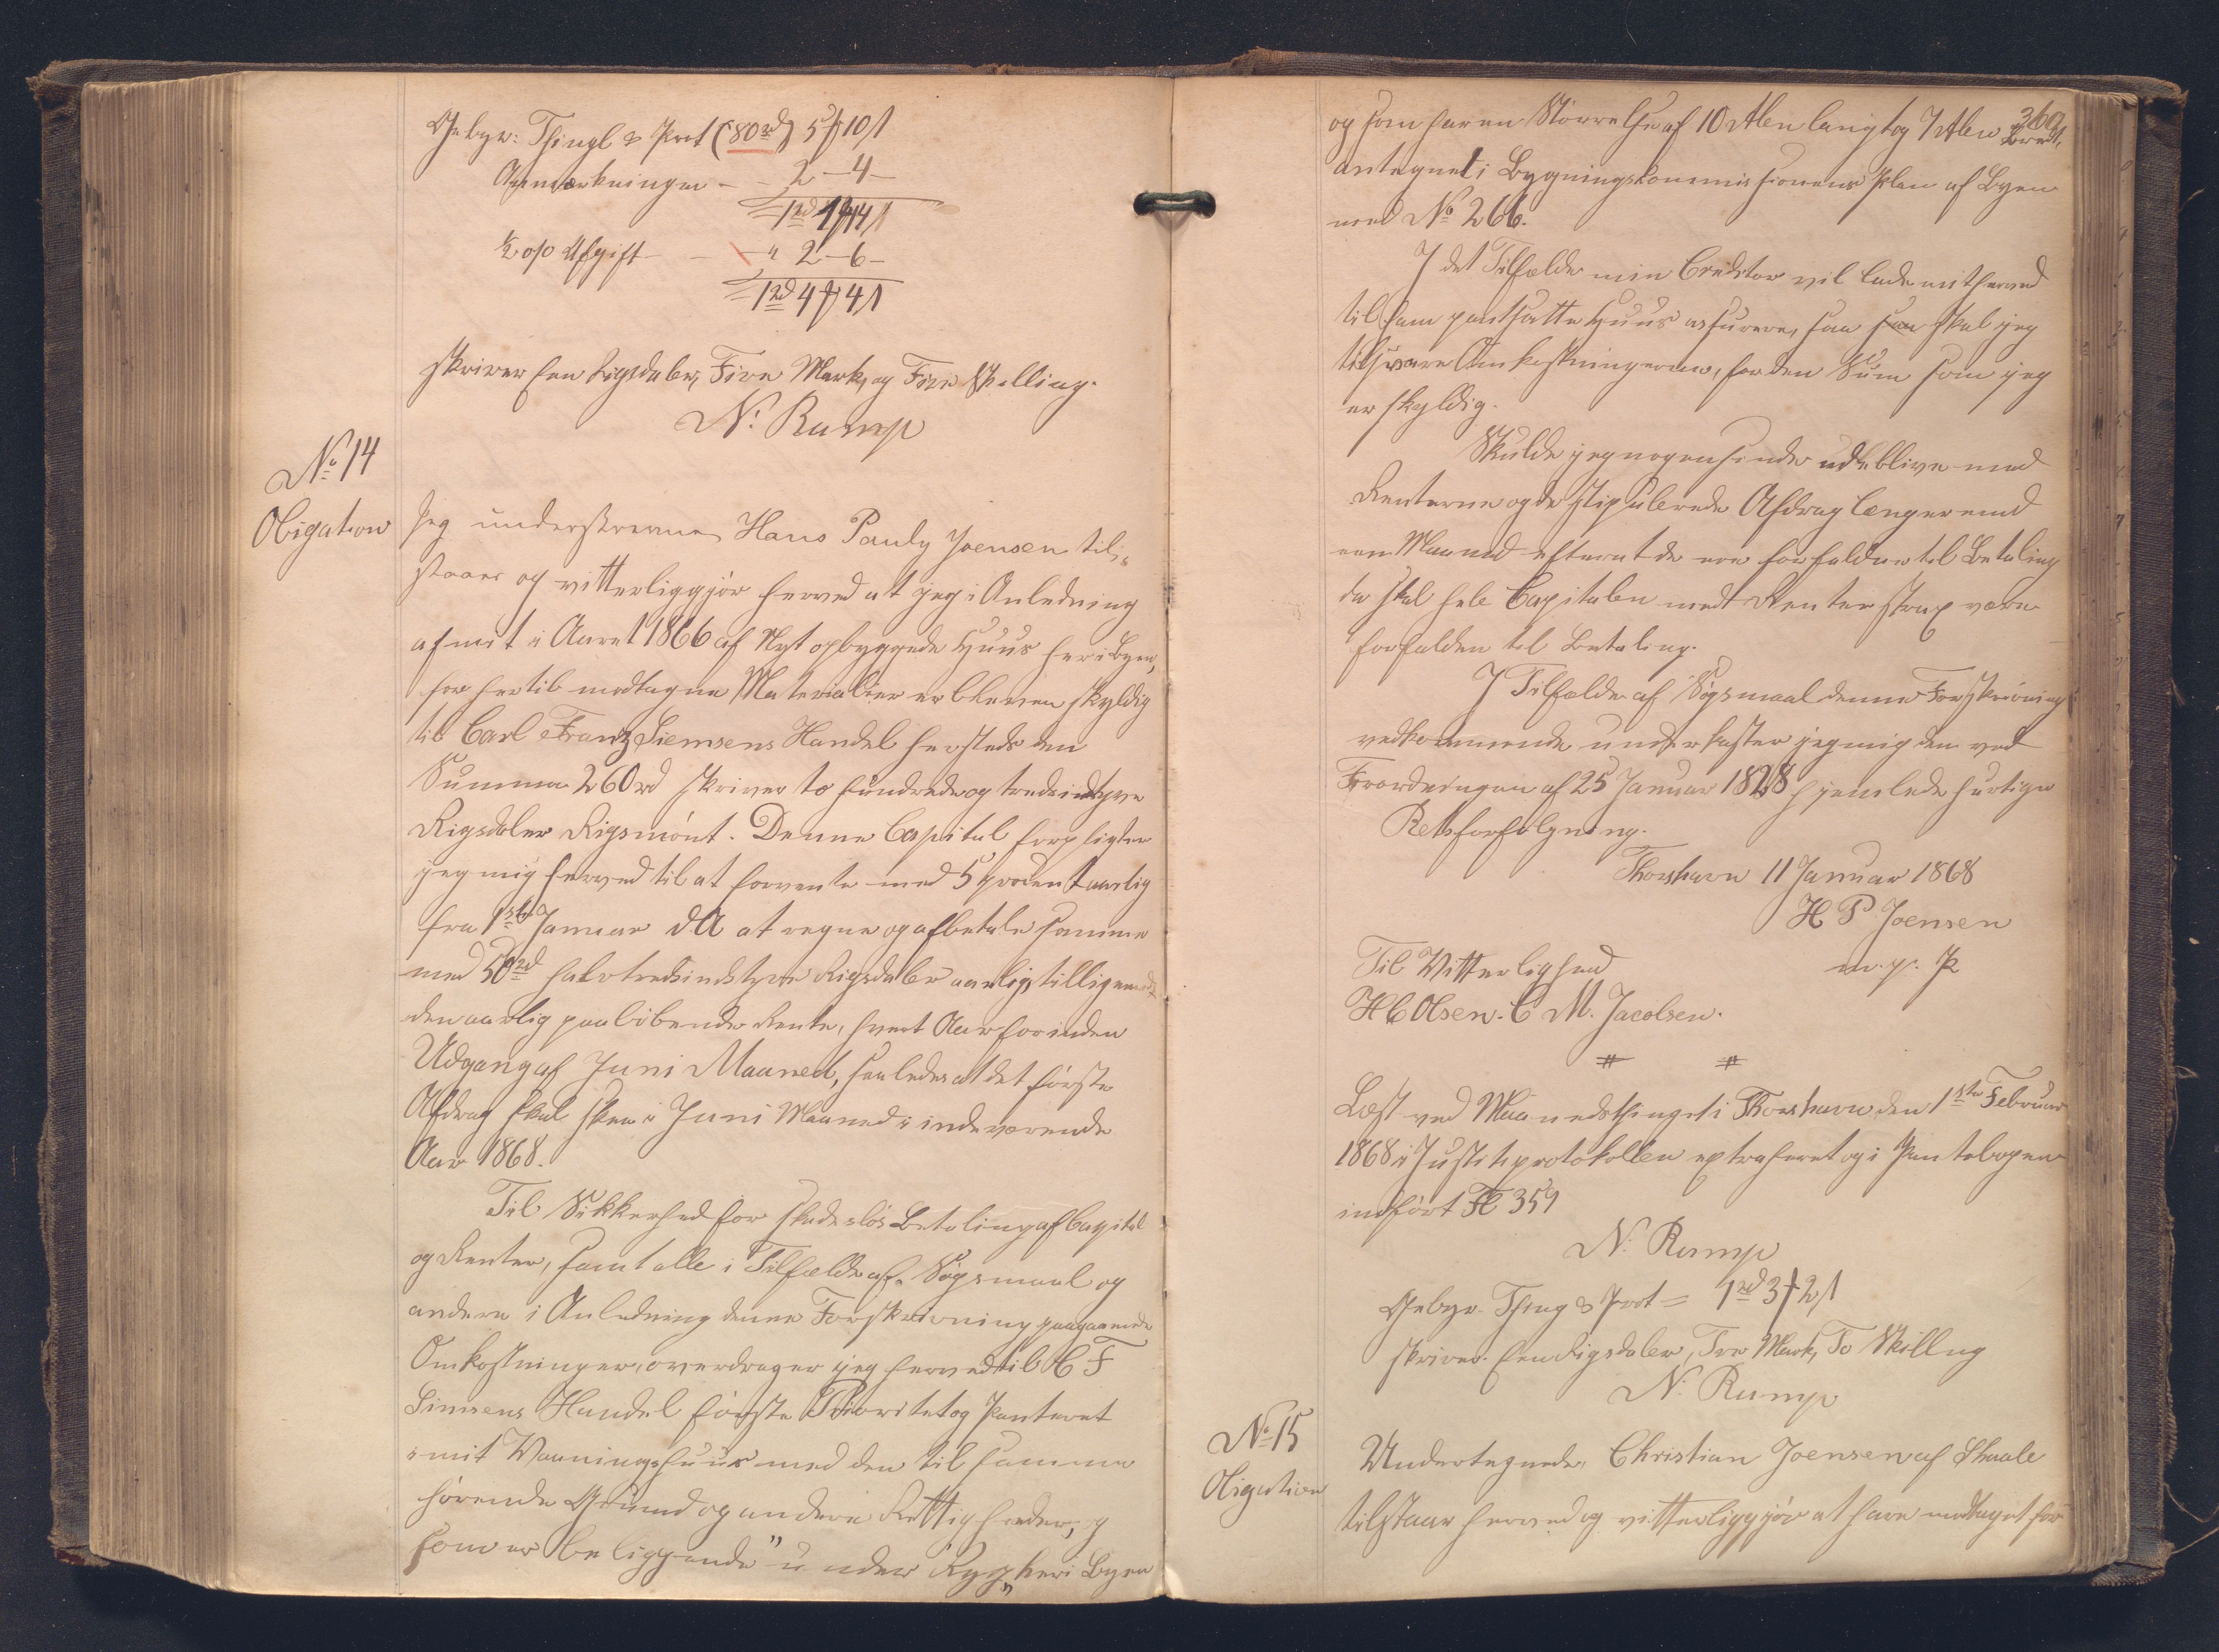 Gebyr: Thingl & Prot (80rd) 5 ₰ 10 /
Anmærkningen - - 2 - 4 -
= 1rd 1 ₰ 14 /
½ o/o Afgift - - " 2 - 6 -
= 1rd 4 ₰ 4 /
skriver Een Rigsdaler, Fire Mark, og Fire Skilling.
N. Rump
No 14
Obigation
Jeg underskrevne Hans Pauly Joensen til-
staaer og vitterliggjør herved at jeg i Anledning
af mit i Aaret 1866 af Nyt opbyggede Huus her i Byen,
for hertil modtagne Materialier er bleven skyldig
til Carl Franz Siemsens Handel hersteds den
Summa 260 rd skriver to hundrede og tredsindstyve
Rigsdaler Rigsmönt. Denne Capital forpligter
jeg mig herved til at forrente med 5 procent aarlig
fra 1ste Januar d A at regne og afbetale samme
med 50rd halvtredsindstyve Rigsdaler aarlig, tilligemed
den aarlig paalöbende Rente, hvert Aar forinden
Udgang af Juni Maaned, saaledes at det förste
Afdrag skal skee i Juni Maaned i indeværende
Aar 1868.
Til Sikkerhed for skadeslös Betaling af Capital
og Renter, samt alle i Tilfælde af Sögsmaal og
andere i Anledning denne Forskrivning paagaaende
Omkostninger, overdrager jeg herved til C F
Simsens Handel förste Prioritet og Panteret
i mit Vaaningshuus med den til samme
hörende Grund og andere Rettigheder, og
som er beliggende "under Ryg" her i Byen
360
og som har en Størrelse af 10 Alen langt og 7 Alen bredt,
antegnet i Bygningskommissionens Plan af Byen
med No 266.
I det Tilfælde min Creditor vil lade mit herved
til ham pantsatte Huus assurere, saa skal jeg
tilsvare Omkostningerne, for den Sum som jeg
er skyldig.
Skulde jeg nogensinde udeblive med
Renterne og de stipulerede Afdrag længer end
een Maaned efterat de ere forfaldne til Betaling
da skal hele Capitalen med Renter strax være
forfalden til Betaling.
I Tilfælde af Sögsmaal denne Forskrivning
vedkommende underkaster jeg mig den ved
Frordningen af 25 Januar 1828 hjemlede hurtige
Retsforfölgning.
Thorshavn 11 Januar 1868
H P Joensen
Til Vitterlighed m. p. P
H C Olsen. C M. Jacobsen.
# #
Læst ved Maanedsthinget i Thorshavn den 1ste Februar
1868 i Justitsprotokollen extraheret og i Pantebogen
indfört Fl 359
N. Rump
Gebyr. Thing & Prot = 1rd 3 ₰ 2 /
skriver Een Rigsdaler, Tre Mark, To Skillng
N. Rump
No 15
Obigation
Undertegnede, Christian Joensen af Skaale
tilstaar herved og vitterliggjör at have modtaget for